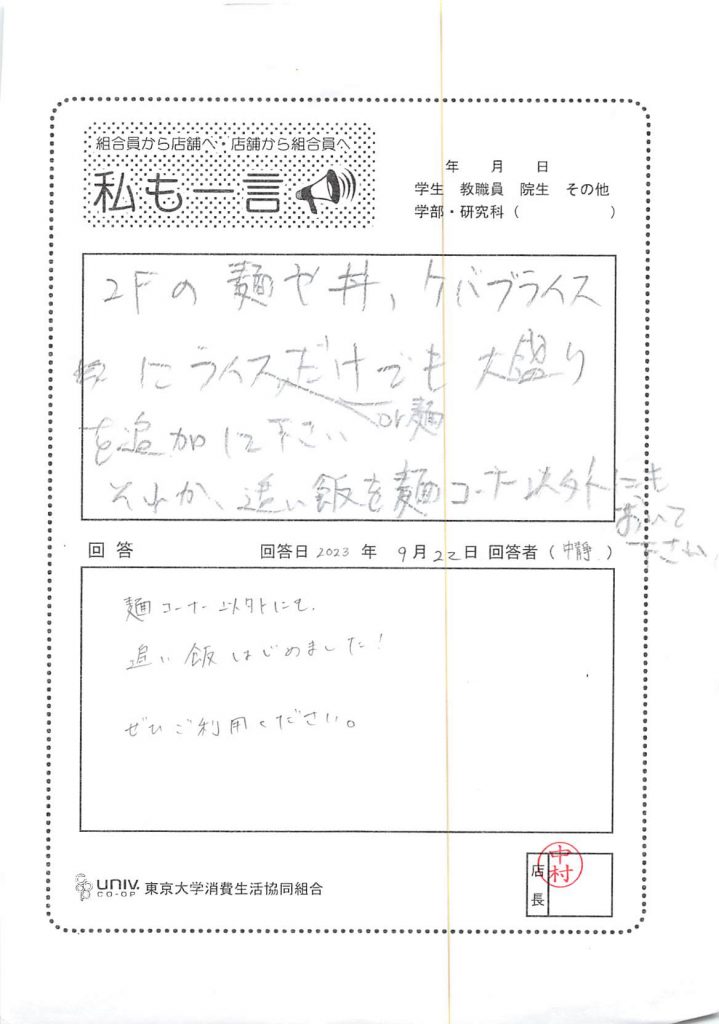 組合員から店舗へ・店舗から組合員へ
私も一言
年 月 日
学生 教職員 院生 その他
学部・研究科( )
2Fの麺や丼、ケバブライス
にライスだけでも大盛り
or麺
を追加して下さい
それか、追い飯を麺コーナー以外にも
おいて
下さい
回答 回答日 2023 年 9月22日 回答者(中静)
麺コーナー以外にも、
追い飯はじめました!
ぜひご利用ください。
UNIV. CO-OP 東京大学消費生活協同組合
店長
中村